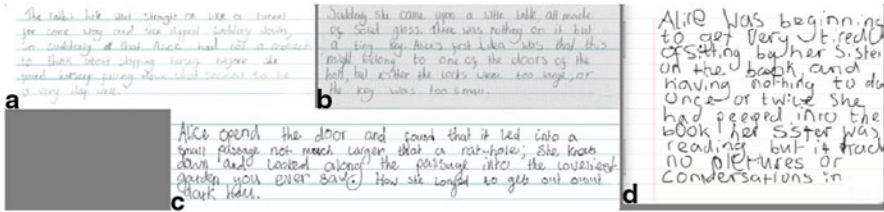 The rabbit hole went straight on like a tunnel
for some way and then dipped suddenly down,
so suddenly that Alice had not a moment
to think about stopping herself before she
found herself falling down what seemed to be
a very deep well.
a
Suddenly she came upon a little table, all made
of solid glass. There was nothing on it but
a tiny key. Alice's first idea was that this
might belong to one of the doors of the
hall, but either the locks were too large, or
the key was too small.
b
Alice opend the door and found that it led into a
small passage not much larger that a rat-hole; She knelt
down and looked along the passage into the loveliest
garden you ever saw. How she longed to get out
dark hall.
c
Alice was beginning
to get very tired
of sitting by her sister
on the bank, and
having nothing to do
Once or twice she
had peeped into the
book her sister was
reading but it
no pictures or
conversations in
d